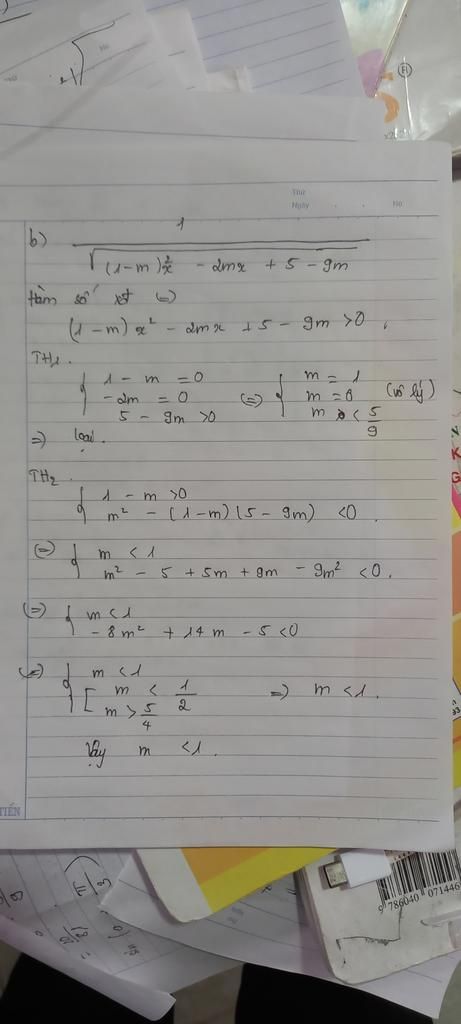 Thứ
Ngày . . No.
b) 1 / √((1-m)x² - 2mx + 5 - 9m
hàm số xđ (=)
(1-m) x² - 2mx + 5 - 9m > 0 .
TH1.
{ 1 - m = 0 (=) { m = 1
-2m = 0 m = 0 (vô lý)
5 - 9m > 0 m < 5/9
=) loại.
TH2
{ 1 - m > 0
m² - (1-m)(5 - 9m) < 0 .
(=) { m < 1
m² - 5 + 5m + 9m - 9m² < 0 .
(=) { m < 1
- 8m² + 14m - 5 < 0
(=) { m < 1
[ m < 1/2 =) m < 1 .
m > 5/4
Vậy m < 1 .
TIẾN
9 786040 071446